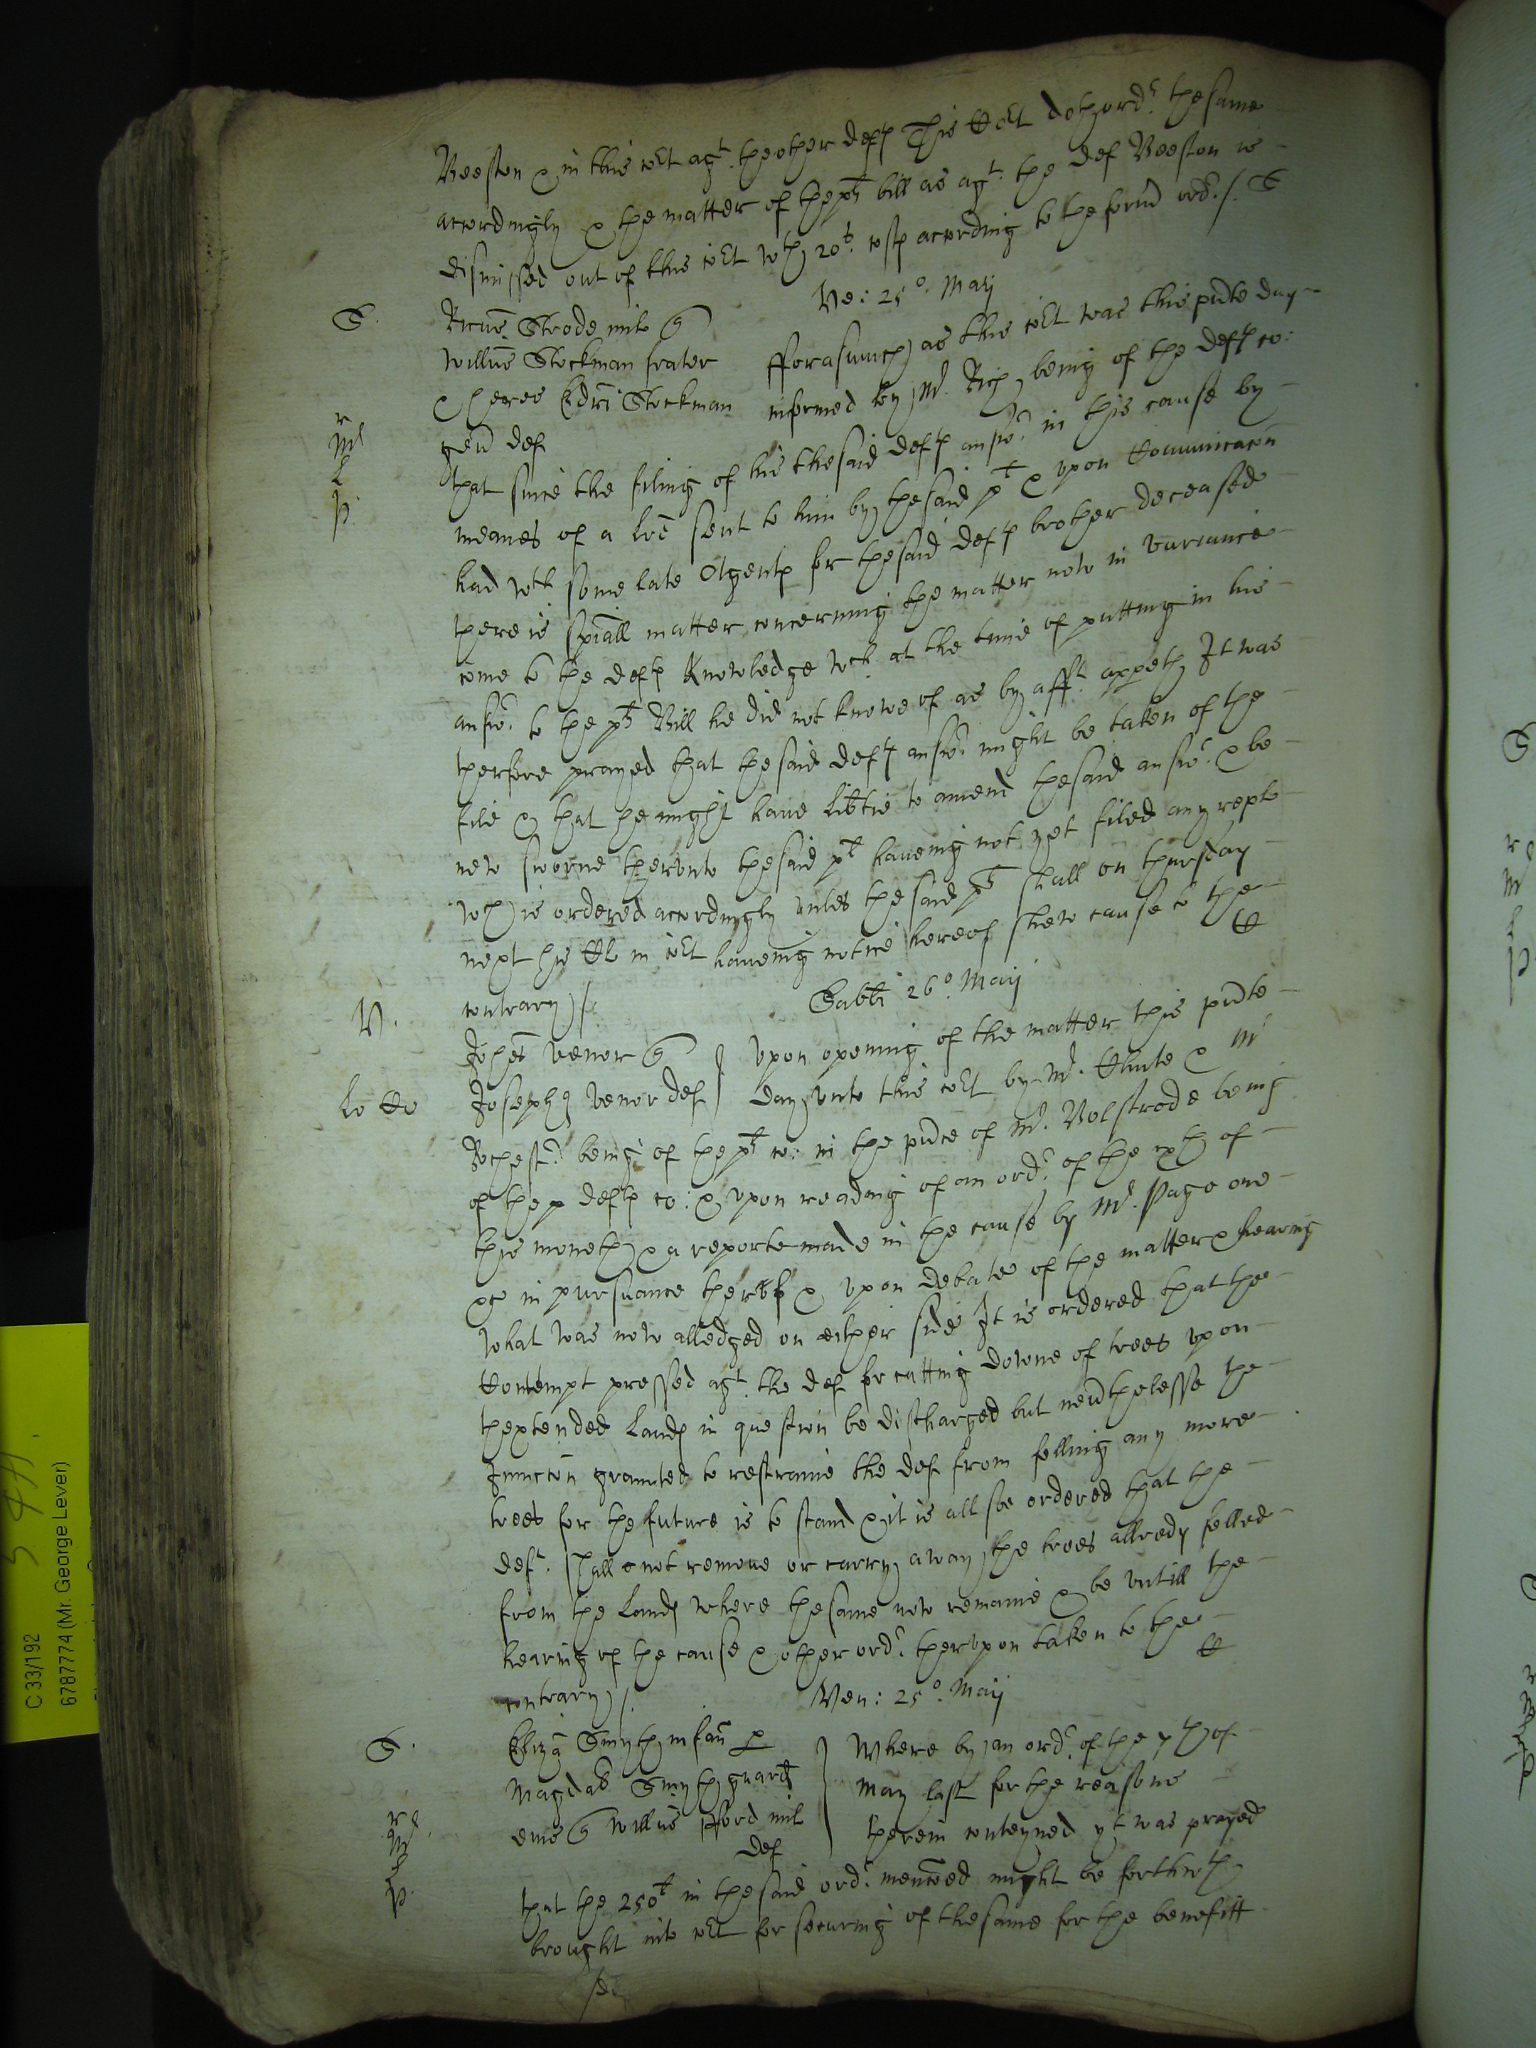 Beeston & in this cort agt. the other deft This Cort doth ordr. the same
accordingly & the matter of the plts bill as agt. the def Beeston is
dismissed out of this cort wth 20s. costs according to the formd ordr./. S
Ve: 25o. Maij
S.
Ricus Strode mil q
Willus Stockman frater
& heres Edri Stockman
gen def
fforasmuch as this cort was this pnte day
informed by Mr. Rich being of the defts co:
r
Mr
L
p.
that since the filing of his the said defts answr. in this cause by
meanes of a lre sent to him by the said plt & upon Comunicacon
had wth some late Agents for the said defts brother deceased
there is spiall matter concerning the matter now in variance
come to the defts knowledge wch at the time of putting in his
answr. to the plts Bill he did not knowe of as by afft. appeth It was
therfore prayed that the said defts answr might be taken of the
file & that he might haue libtie to amend the said answr. & be
new sworne thervnto the said plt haueing not yet filed any repl
wch is ordered accordingly unles the said plt shall on thursday
next his Cl in cort haueing notice hereof shew cause to the
contrary /.
Sabbti 26o. Maij
V.
Johes Venor q
Josephq Venor def
Vpon opening of the matter this pnte
day vnto this cort by Mr. Chute & Mr
Rochestr. being of the plts co: in the pnce of Mr. Bolstrode being
of the defts co: & vpon reading of an ordr. of the xth of
this moneth & a reporte made in the cause by Mr. Page one
&c in pursuance therof & vpon debate of the matter & hearing
what was now alledged on either side It is ordered that the
Contempt pressed agt. the def for cutting downe of trees vpon
thextended lands in question be discharged but neuthelesse the
Iniuncton graunted to restraine the def from felling any more
trees for the future is to stand & it is allsoe ordered that the
deft. shall not remoue or carry away the trees allredy felled
from the lands where the same now remaine & be vntill the
hearing of the cause & other ordr. thervpon taken to the
contrary /.
Ven: 25o. Maij
S.
Eliz Smyth infan p
Magdal Smyth guard
eius q Willus fford mil
def
Where by an ordr. of the 7th of
May last for the reasons
therein conteyned yt was prayed
that the 250l in the said ordr. menconed might be forthwth
brought into cort for securing of the same for the benefitt
C 33/192
6787774 (Mr. George Lever)